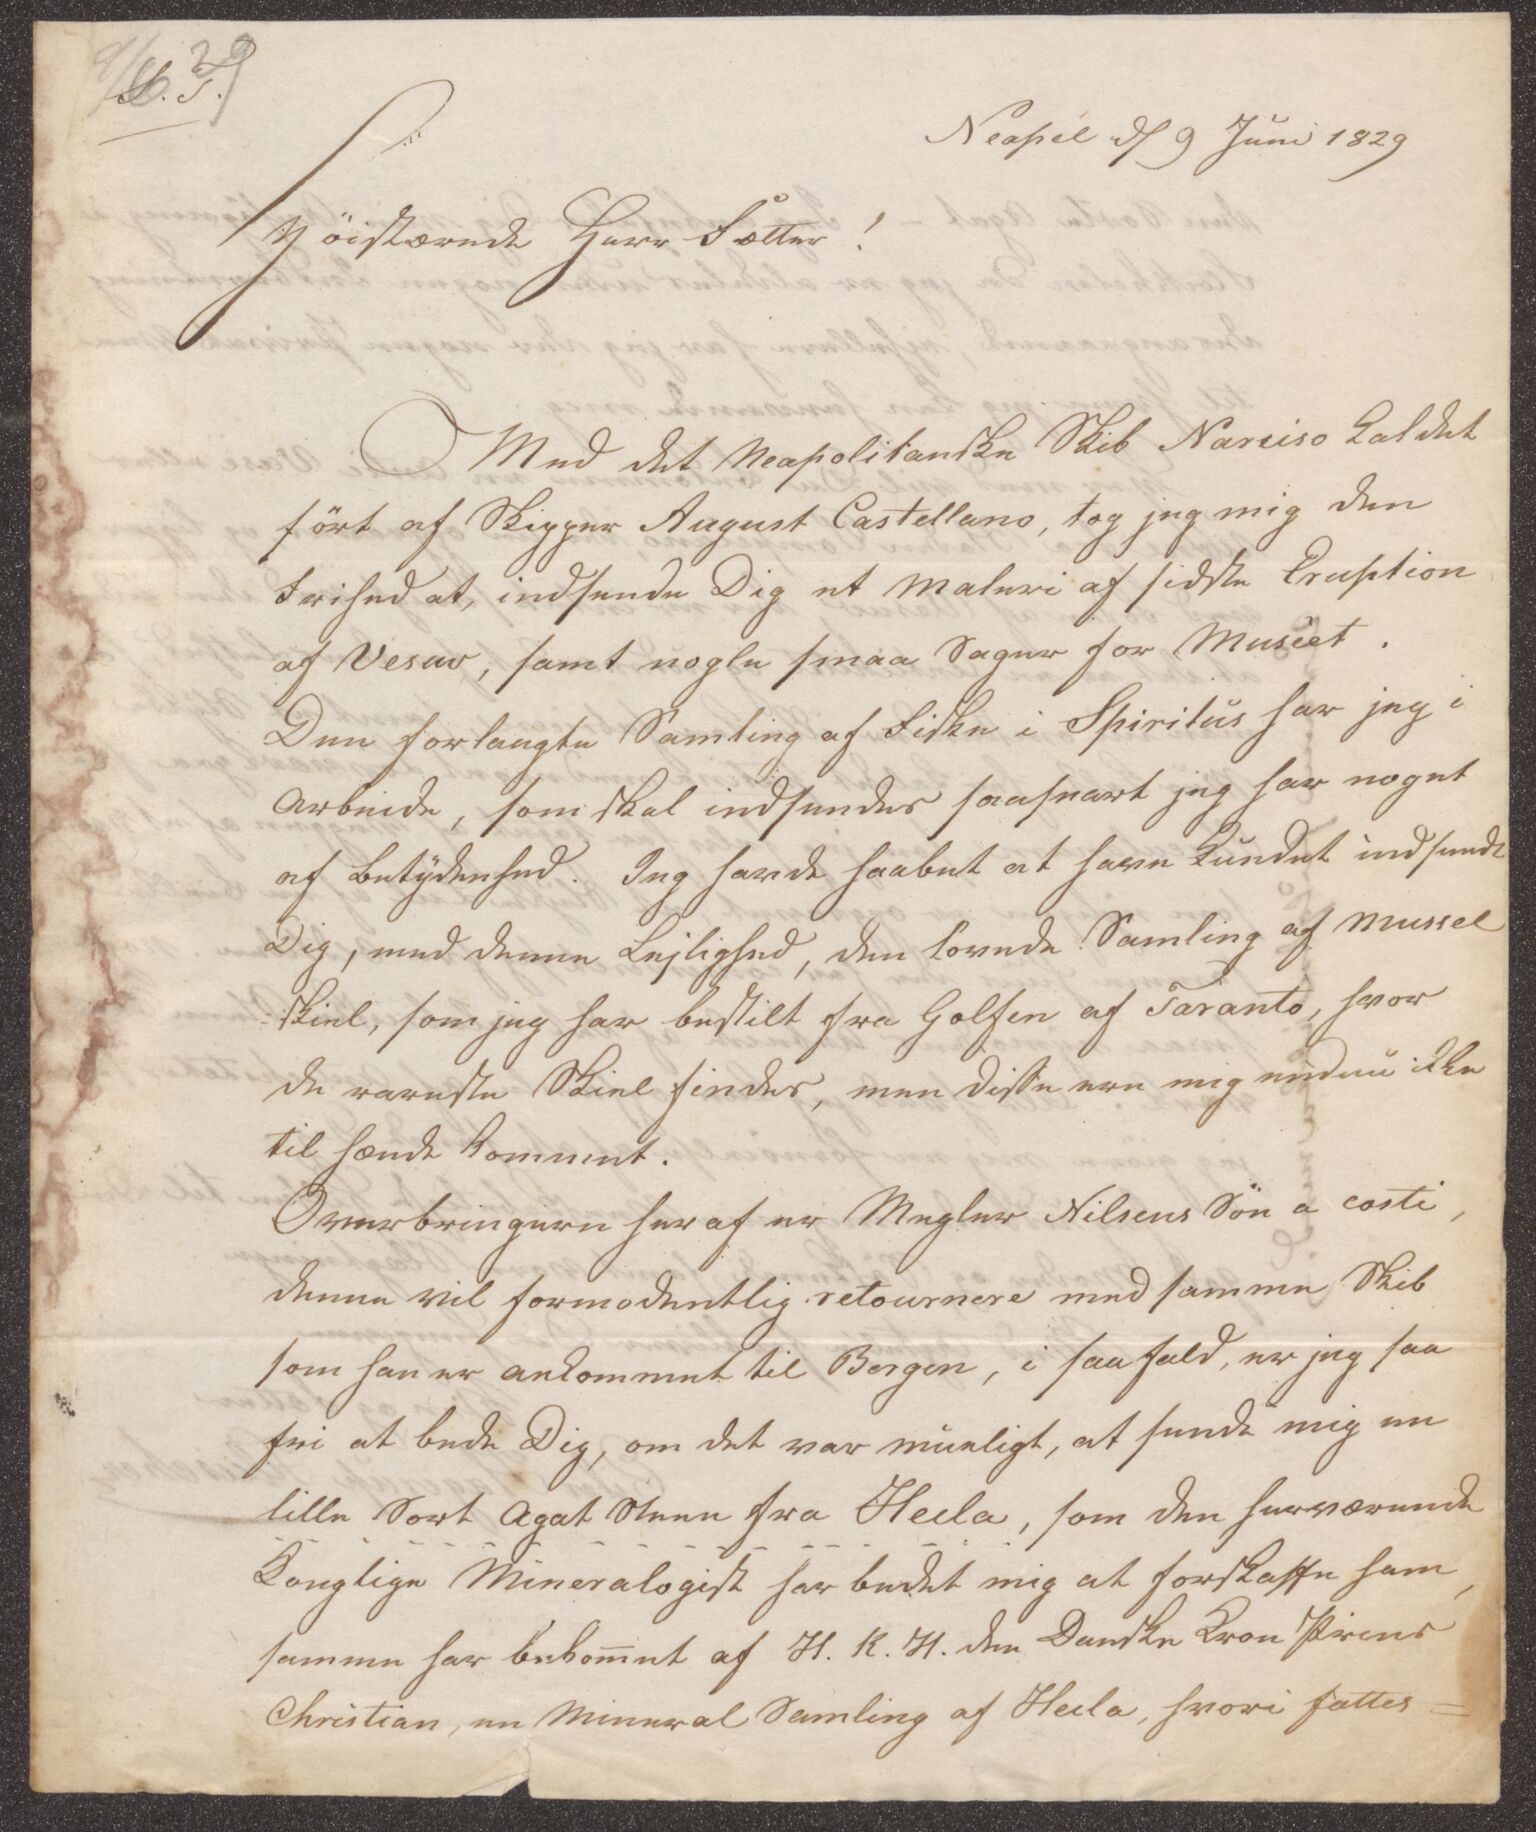 9/6 29
S. T.
Neapel d 9 Juni 1829
Höistærede Herr Fætter!
Med det Neapolitanske Skib Narciso kaldet
fört af Skipper August Castellano, tog jeg mig den
Frihed at, indsende Dig et Maleri af sidste Eruption
af Vesuv, samt nogle smaa Sager for Muséet.
Den forlangte Samling af Fiske i Spiritus har jeg i
Arbeide, som skal indsendes saasnart jeg har noget
af Betydenhed. Jeg havde haabet at have kundet indsende
Dig, med denne Lejlighed, den lovede Samling af Mussel
skiel, som jeg har bestilt fra Golfen af Taranto, hvor
de rareste Skiel findes, men disse ere mig endnu ikke
til hænde kommet.
Overbringeren heraf er Megler Nilsens Sön a costi,
denne vil formodentlig retournere med samme Skib
som han er ankommet til Bergen, i saafald, er jeg saa
fri at bede Dig, om det var mueligt, at sende mig en
lille Sort Agat Steen fra Hecla, som den herværende
Konglige Mineralogist har bedet mig at forskaffe ham,
samme har bekom̅et af H. K. H. den Danske Kron Prins
Christian, en Mineral Samling af Hecla, hvori fattes =